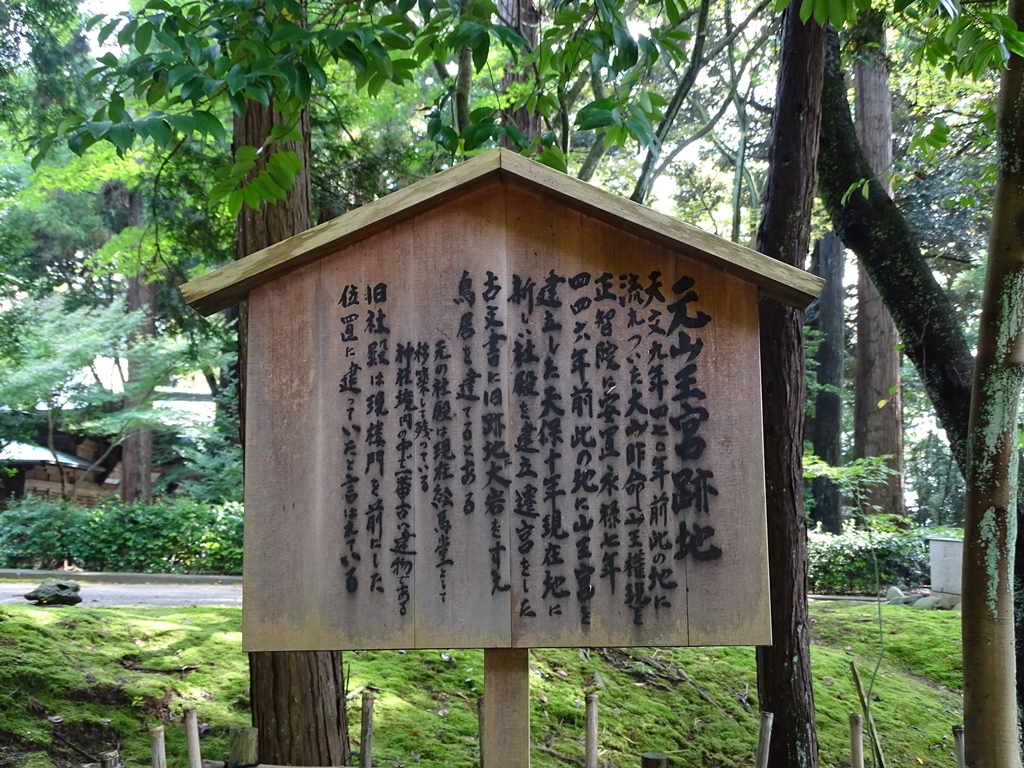 元山王宮跡地
天文九年四七〇年前此の地に
流れついた大山咋命山王権現を
正智院に安置永禄七年
四四六年前此の地に山王宮を
建立した天保十年現在地に
新しい社殿を建立遷宮をした
古文書に旧跡地大岩をすえ
鳥居を建てるとある
元の社殿は現在絵馬堂として
移築して残っている
神社境内の中で一番古い建物である
旧社殿は現楼門を前にした
位置に建っていたと言はれいる